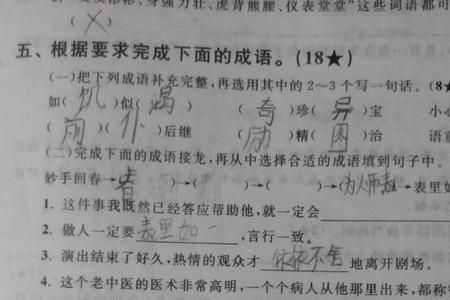 虎背熊腰、仪表堂堂”这些词语都可
(X)
五、根据要求完成下面的成语。(18★)
(一)把下列成语补充完整,再选用其中的2~3个写一句话。(8★
如(饥)似(渴) (奇)珍(异)宝 小心
(前)(仆)后继 (励)精(图)治 语重
(二)完成下面的成语接龙,再从中选择合适的成语填到句子中。
妙手回春→(春 )→( )→( )→(为人师表)→表里如
1. 这件事我既然已经答应帮助他,就一定会
2. 做人一定要 表里如一 ,言行一致。
3. 演出结束了好久,热情的观众才 依依不舍 地离开剧场。
4. 这个老中医的医术非常高明,一个个病人从他那里出来,都称